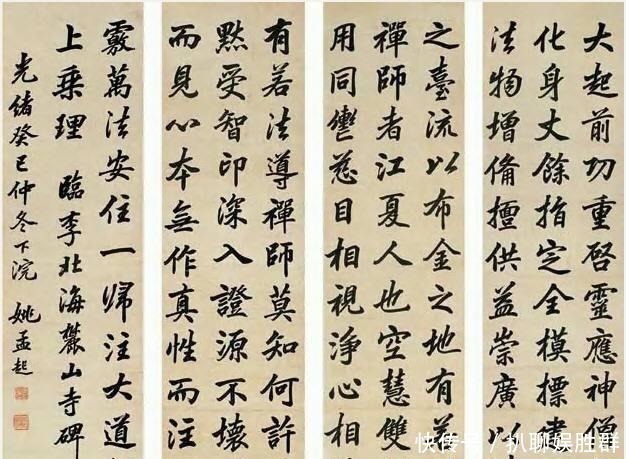 大起前功重啓靈應神僧
化身丈餘指定全模摽
法物增備擅供益崇廣以
之臺流以布金之地有
禪師者江夏人也空慧雙
用同轡慈目相視淨心相
有若法導禪師莫知何許
默受智印深入證源不壞
而見心本無作真性而注
覈萬法安住一歸注大道
上乘理 臨李北海麓山寺碑
光緒癸巳仲冬下浣 姚孟起
快传号 / 扒聊娱胜群